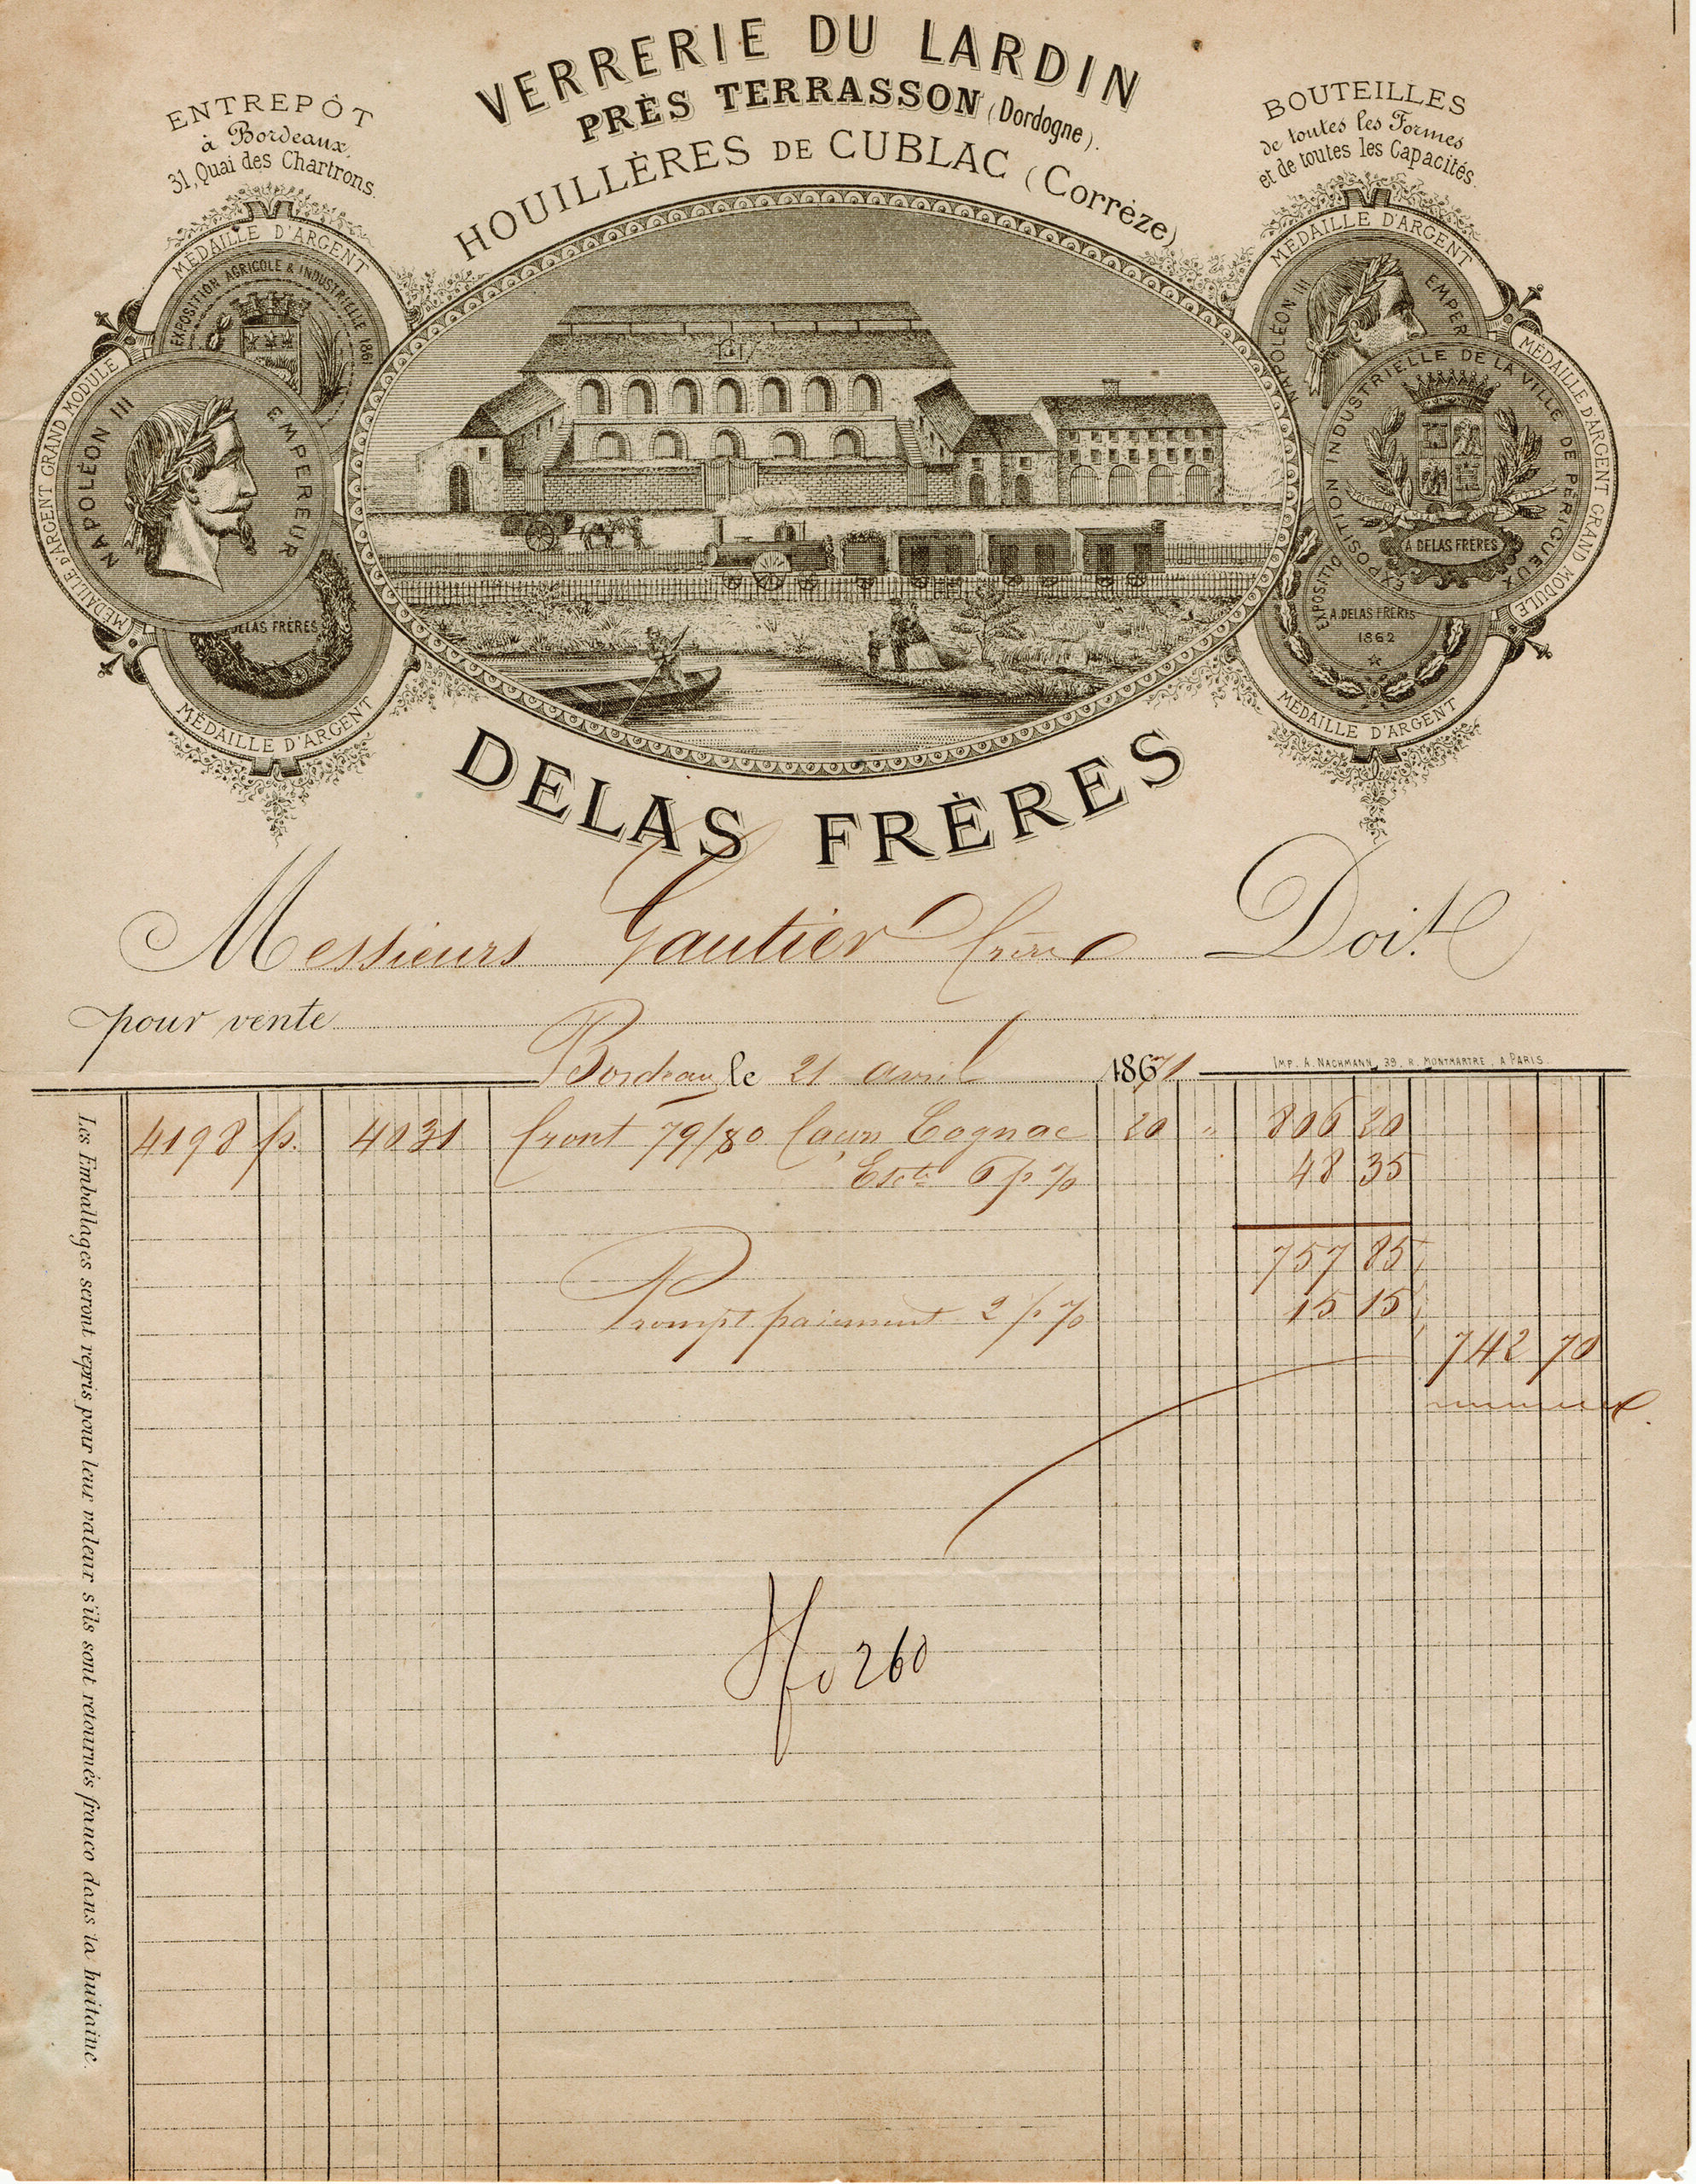 VERRERIE DU LARDIN
PRÈS TERRASSON (Dordogne).
HOUILLÈRES DE CUBLAC (Corrèze)
ENTREPÔT
à Bordeaux,
31, Quai des Chartrons.
BOUTEILLES
de toutes les Formes
et de toutes les Capacités.
MÉDAILLE D'ARGENT
EXPOSITION AGRICOLE & INDUSTRIELLE 1861
MÉDAILLE D'ARGENT GRAND MODULE
NAPOLÉON III EMPEREUR
DELAS FRÈRES
MÉDAILLE D'ARGENT
MÉDAILLE D'ARGENT
NAPOLÉON III EMPER
MÉDAILLE D'ARGENT GRAND MODULE
EXPOSITION INDUSTRIELLE DE LA VILLE DE PÉRIGUEUX
A DELAS FRÈRES
EXPOSITIO
A. DELAS FRÈRES
1862
MÉDAILLE D'ARGENT
DELAS FRÈRES
Messieurs Gautier frères Doit
pour vente
Bordeaux le 21 avril 1871
IMP. A. NACHMANN, 39, R. MONTMARTRE, A PARIS
4198 p. 4031 front 79/80 façon Cognac 20 " 806 20
Escte 6 p % 48 35
757 85
Prompt paiement 2 p % 15 15
742 70
fo 260
Les Emballages seront repris pour leur valeur s'ils sont retournés franco dans la huitaine.